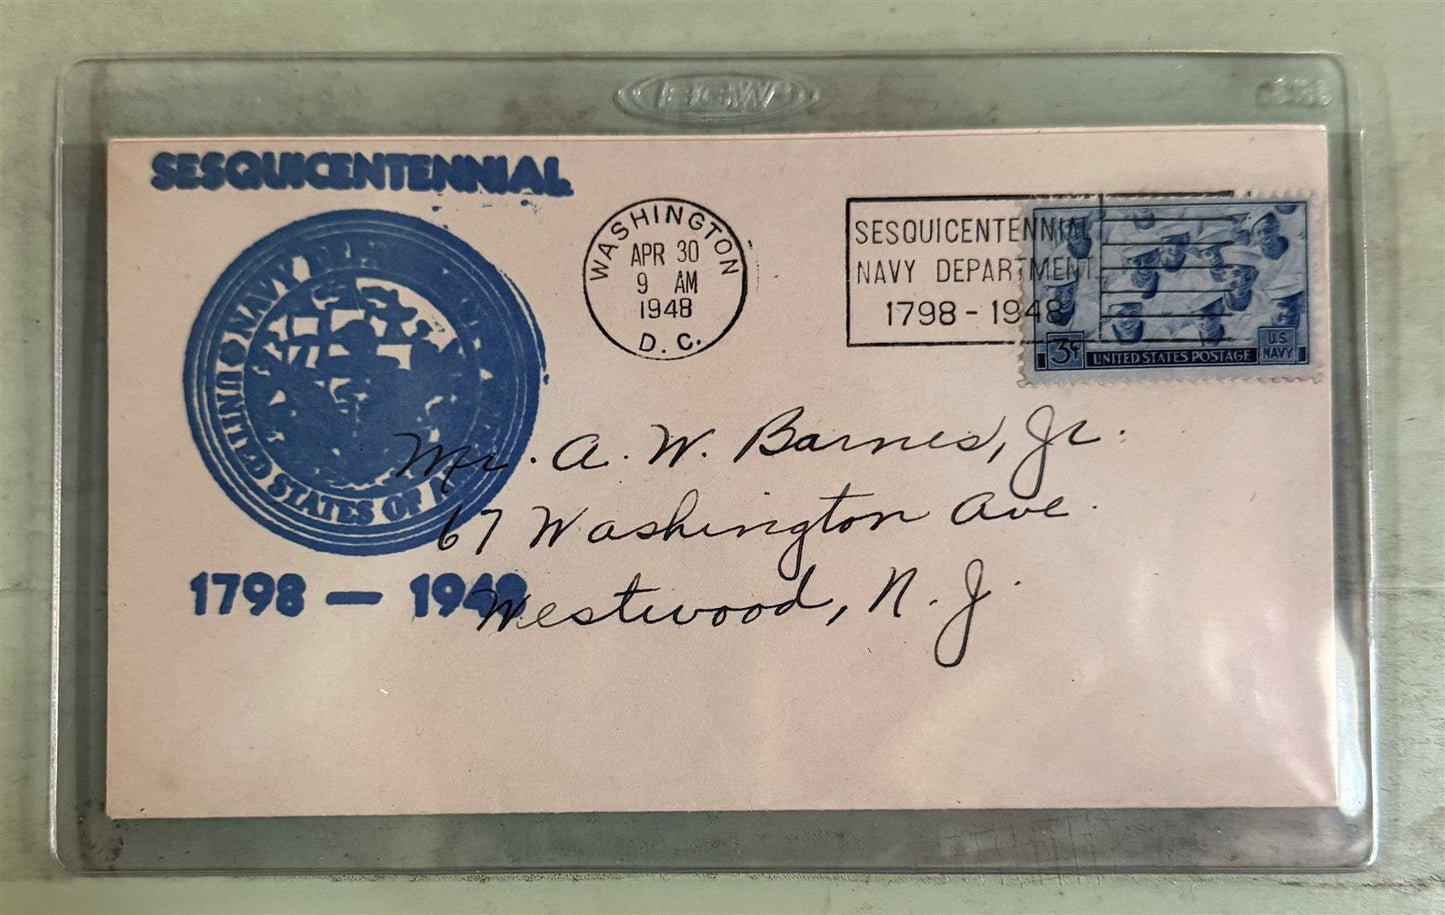 BCW
SESQUICENTENNIAL
NAVY DEPARTMENT
UNITED STATES OF AMERICA
1798 — 1948
WASHINGTON
APR 30
9 AM
1948
D. C.
SESQUICENTENNIAL
NAVY DEPARTMENT
1798 - 1948
3¢
UNITED STATES POSTAGE
US
NAVY
Mr. A. W. Barnes, Jr.
67 Washington Ave.
Westwood, N. J.